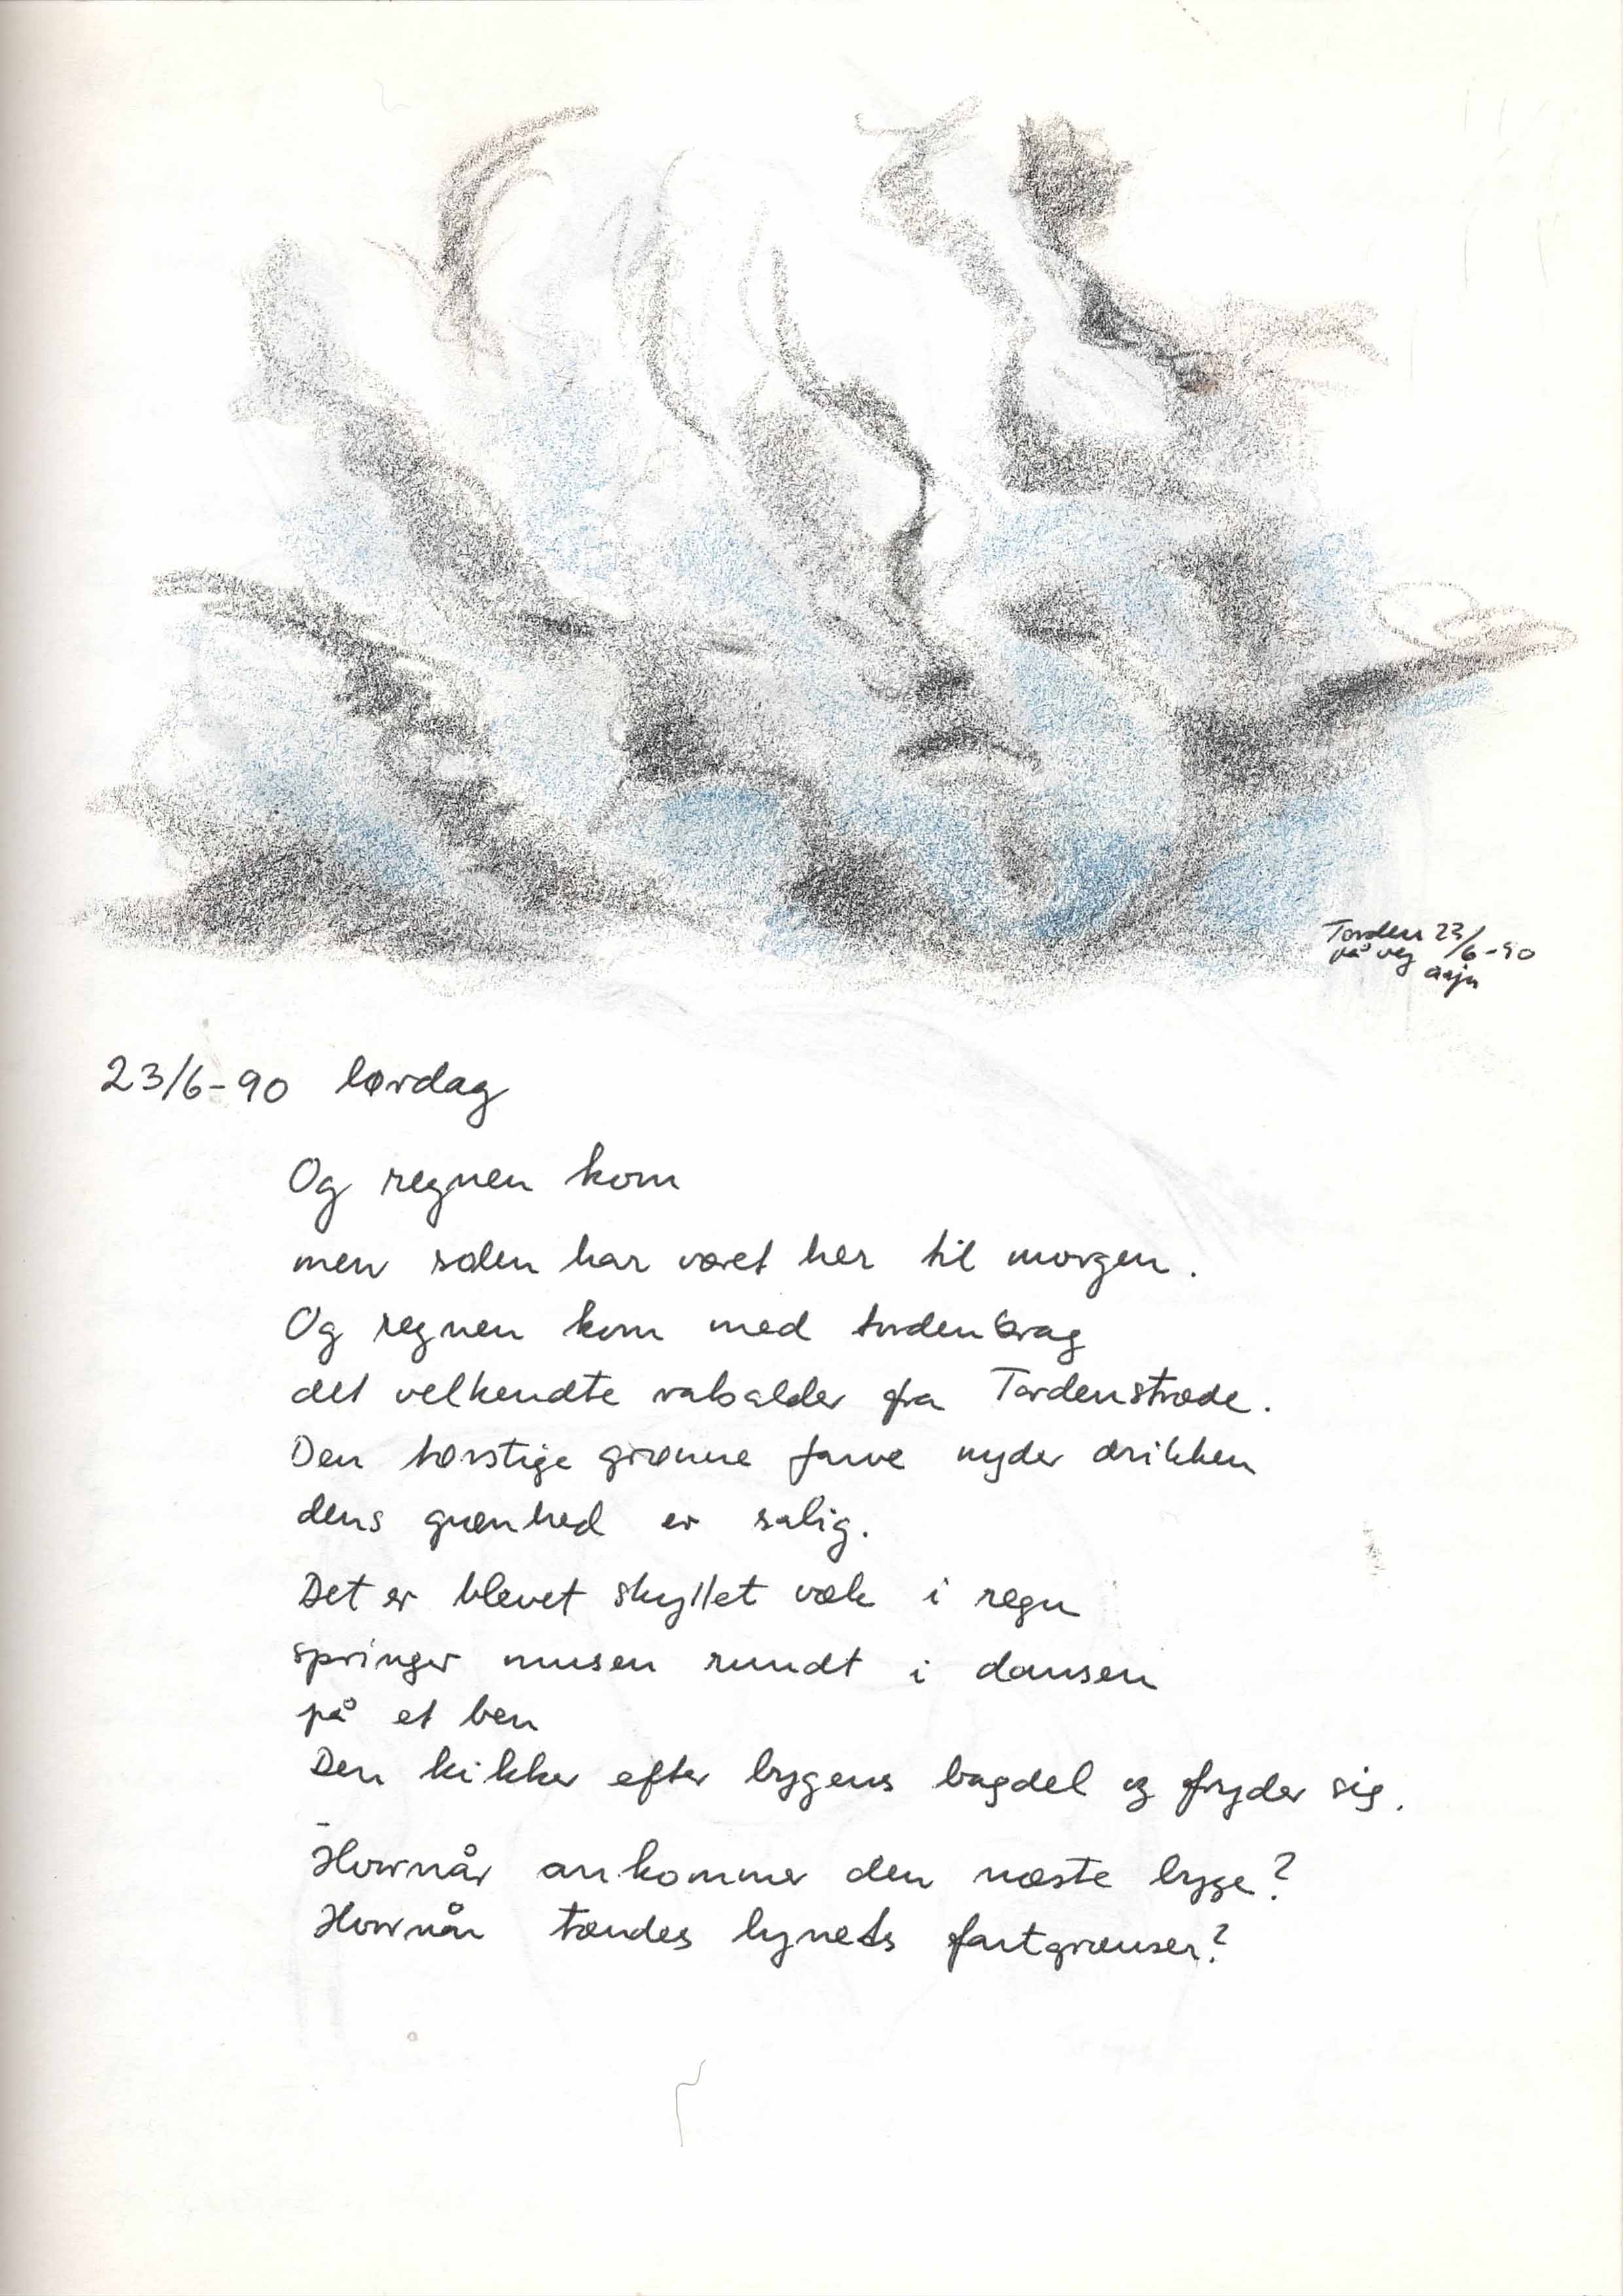 Torden 23/6-90
på vej
aajn
23/6-90 lørdag
Og regnen kom
men solen har været her til morgen.
Og regnen kom med tordenbrag
det velkendte rabalder fra Tordenstræde.
Den tørstige grønne farve nyder drikken
dens grønhed er salig.
Det er blevet skyllet væk i regn
springer musen rundt i dansen
på et ben
Den kikker efter bygens bagdel og fryder sig.
Hvornår ankommer den næste byge?
Hvornår tændes lynets fartgrænser?